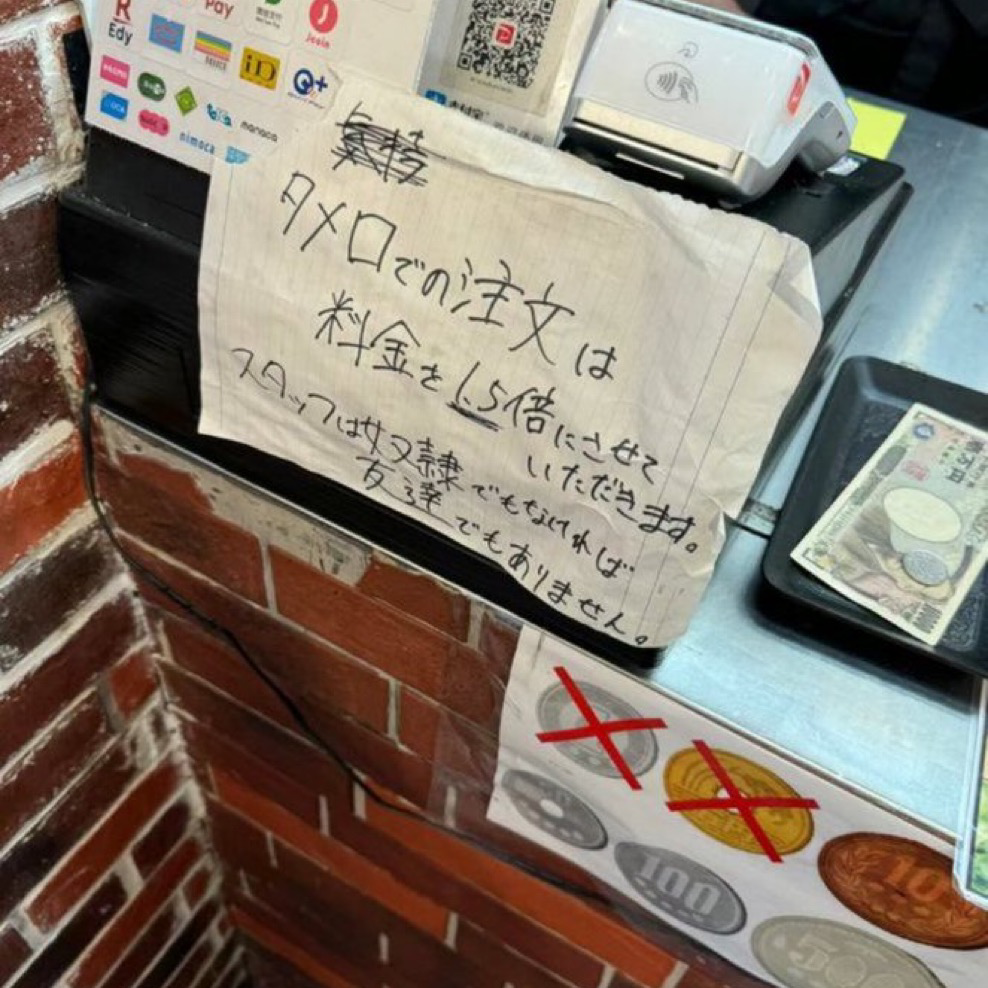 R
Edy
Pay
J
Jcoin
iD
nimoca
manaca
タメ口での注文は
料金を1.5倍にさせて
いただきます。
スタッフは奴隷でもなければ
友達でもありません。
100
10
500